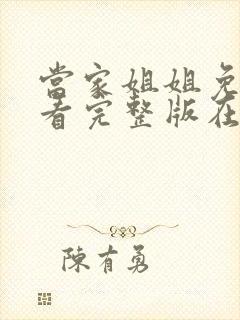 當家姐姐免
看完整版在
陳有勇